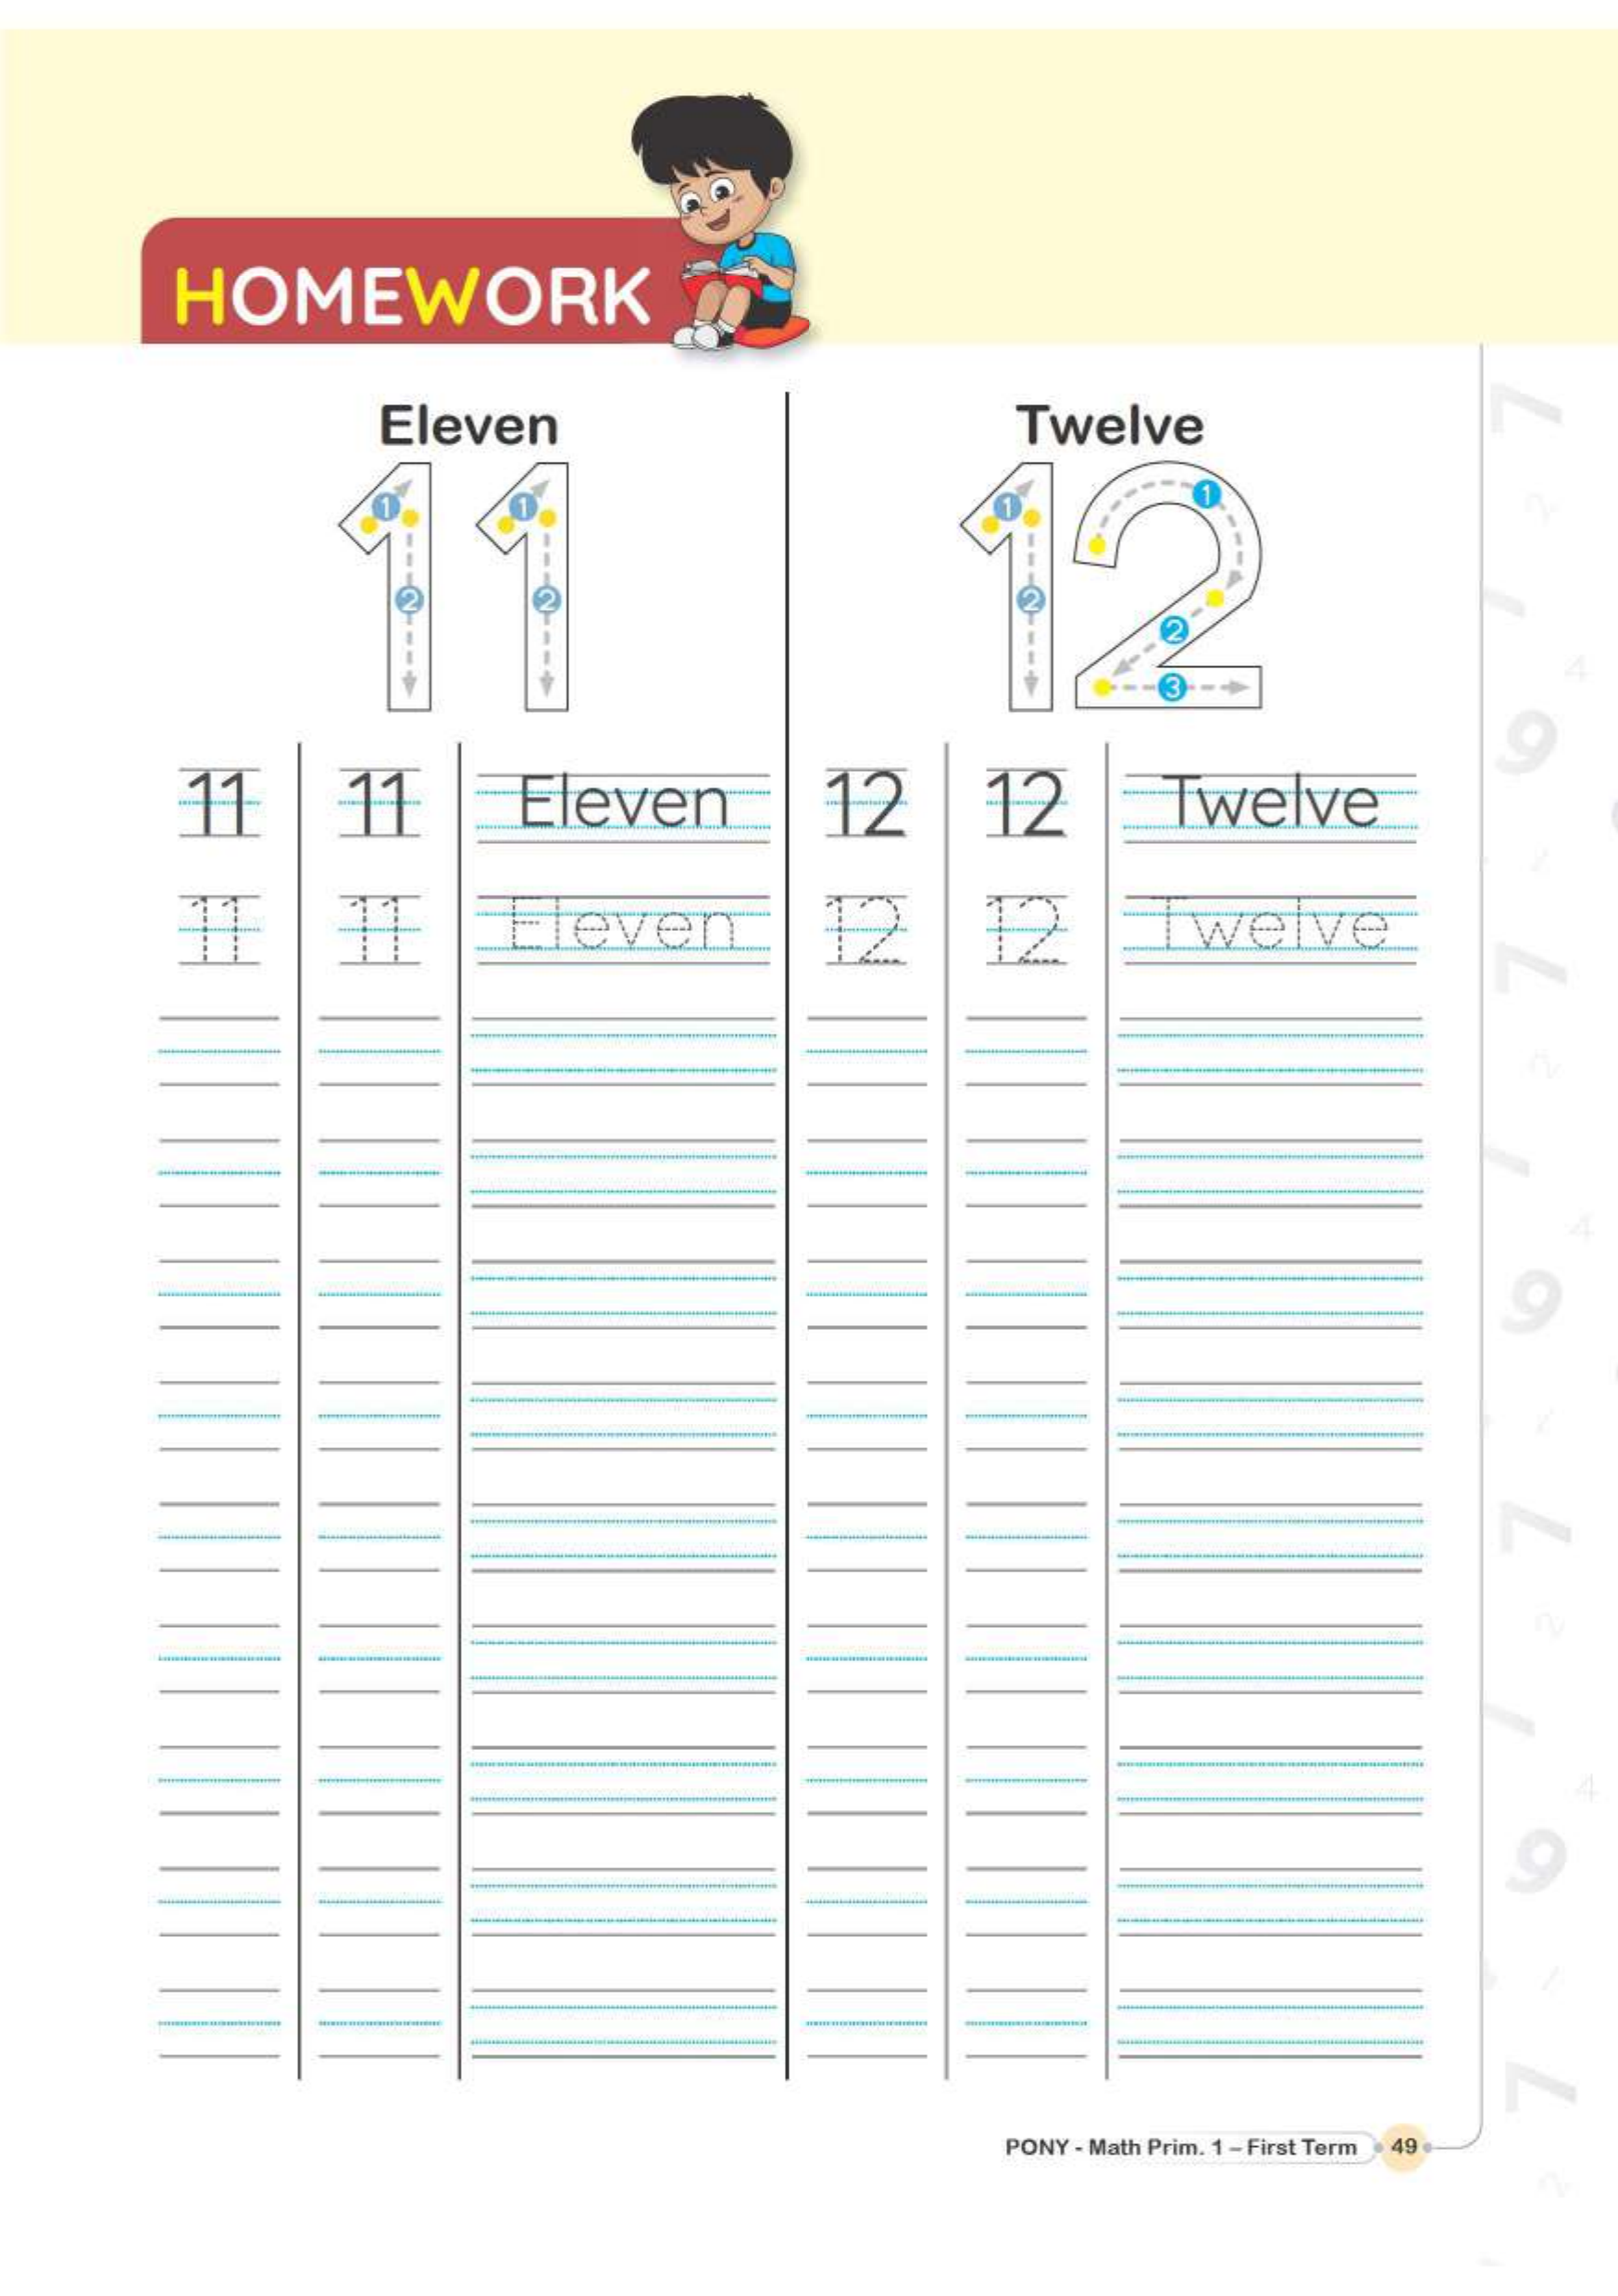 HOMEWORK
Eleven
Twelve
1 1 1 1 1 2
2 2 2 3
11 11 Eleven 12 12 Twelve
11 11 Eleven 12 12 Twelve
PONY - Math Prim. 1 – First Term 49